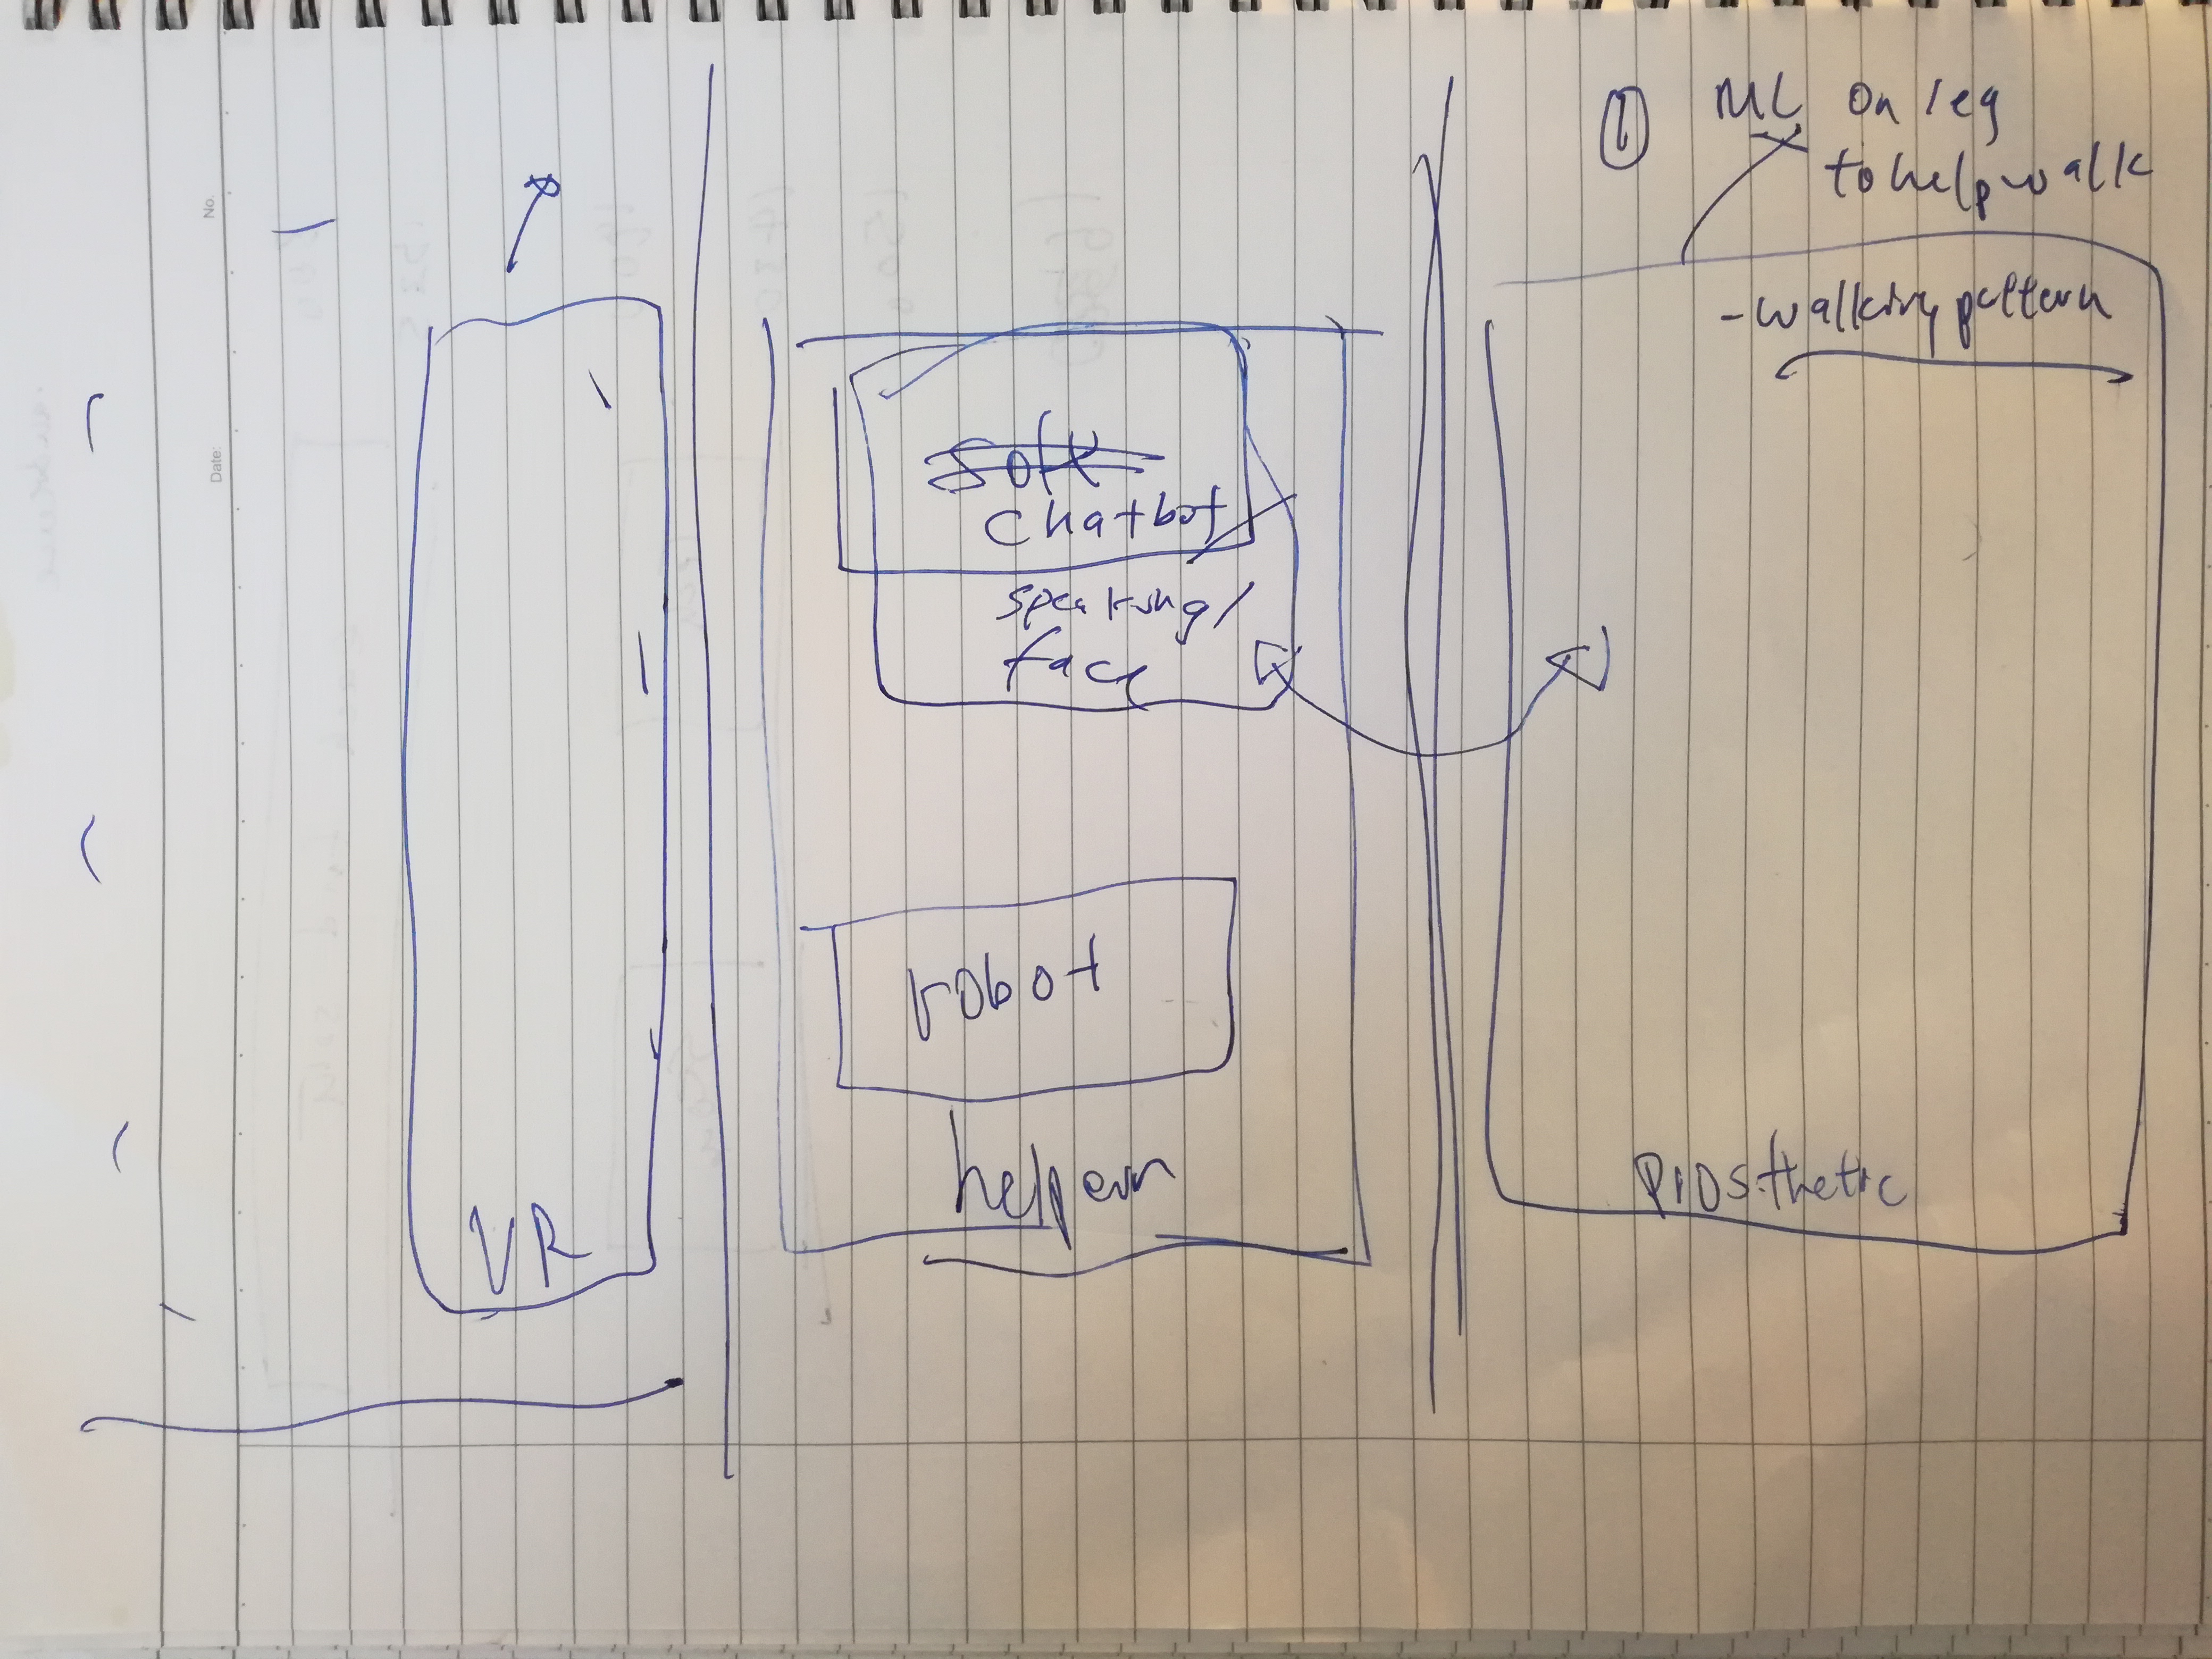 No.
Date:
VR
soft
chatbot
speaking/
face
robot
1
ML on leg
to help walk
-walking pattern
Prosthetic